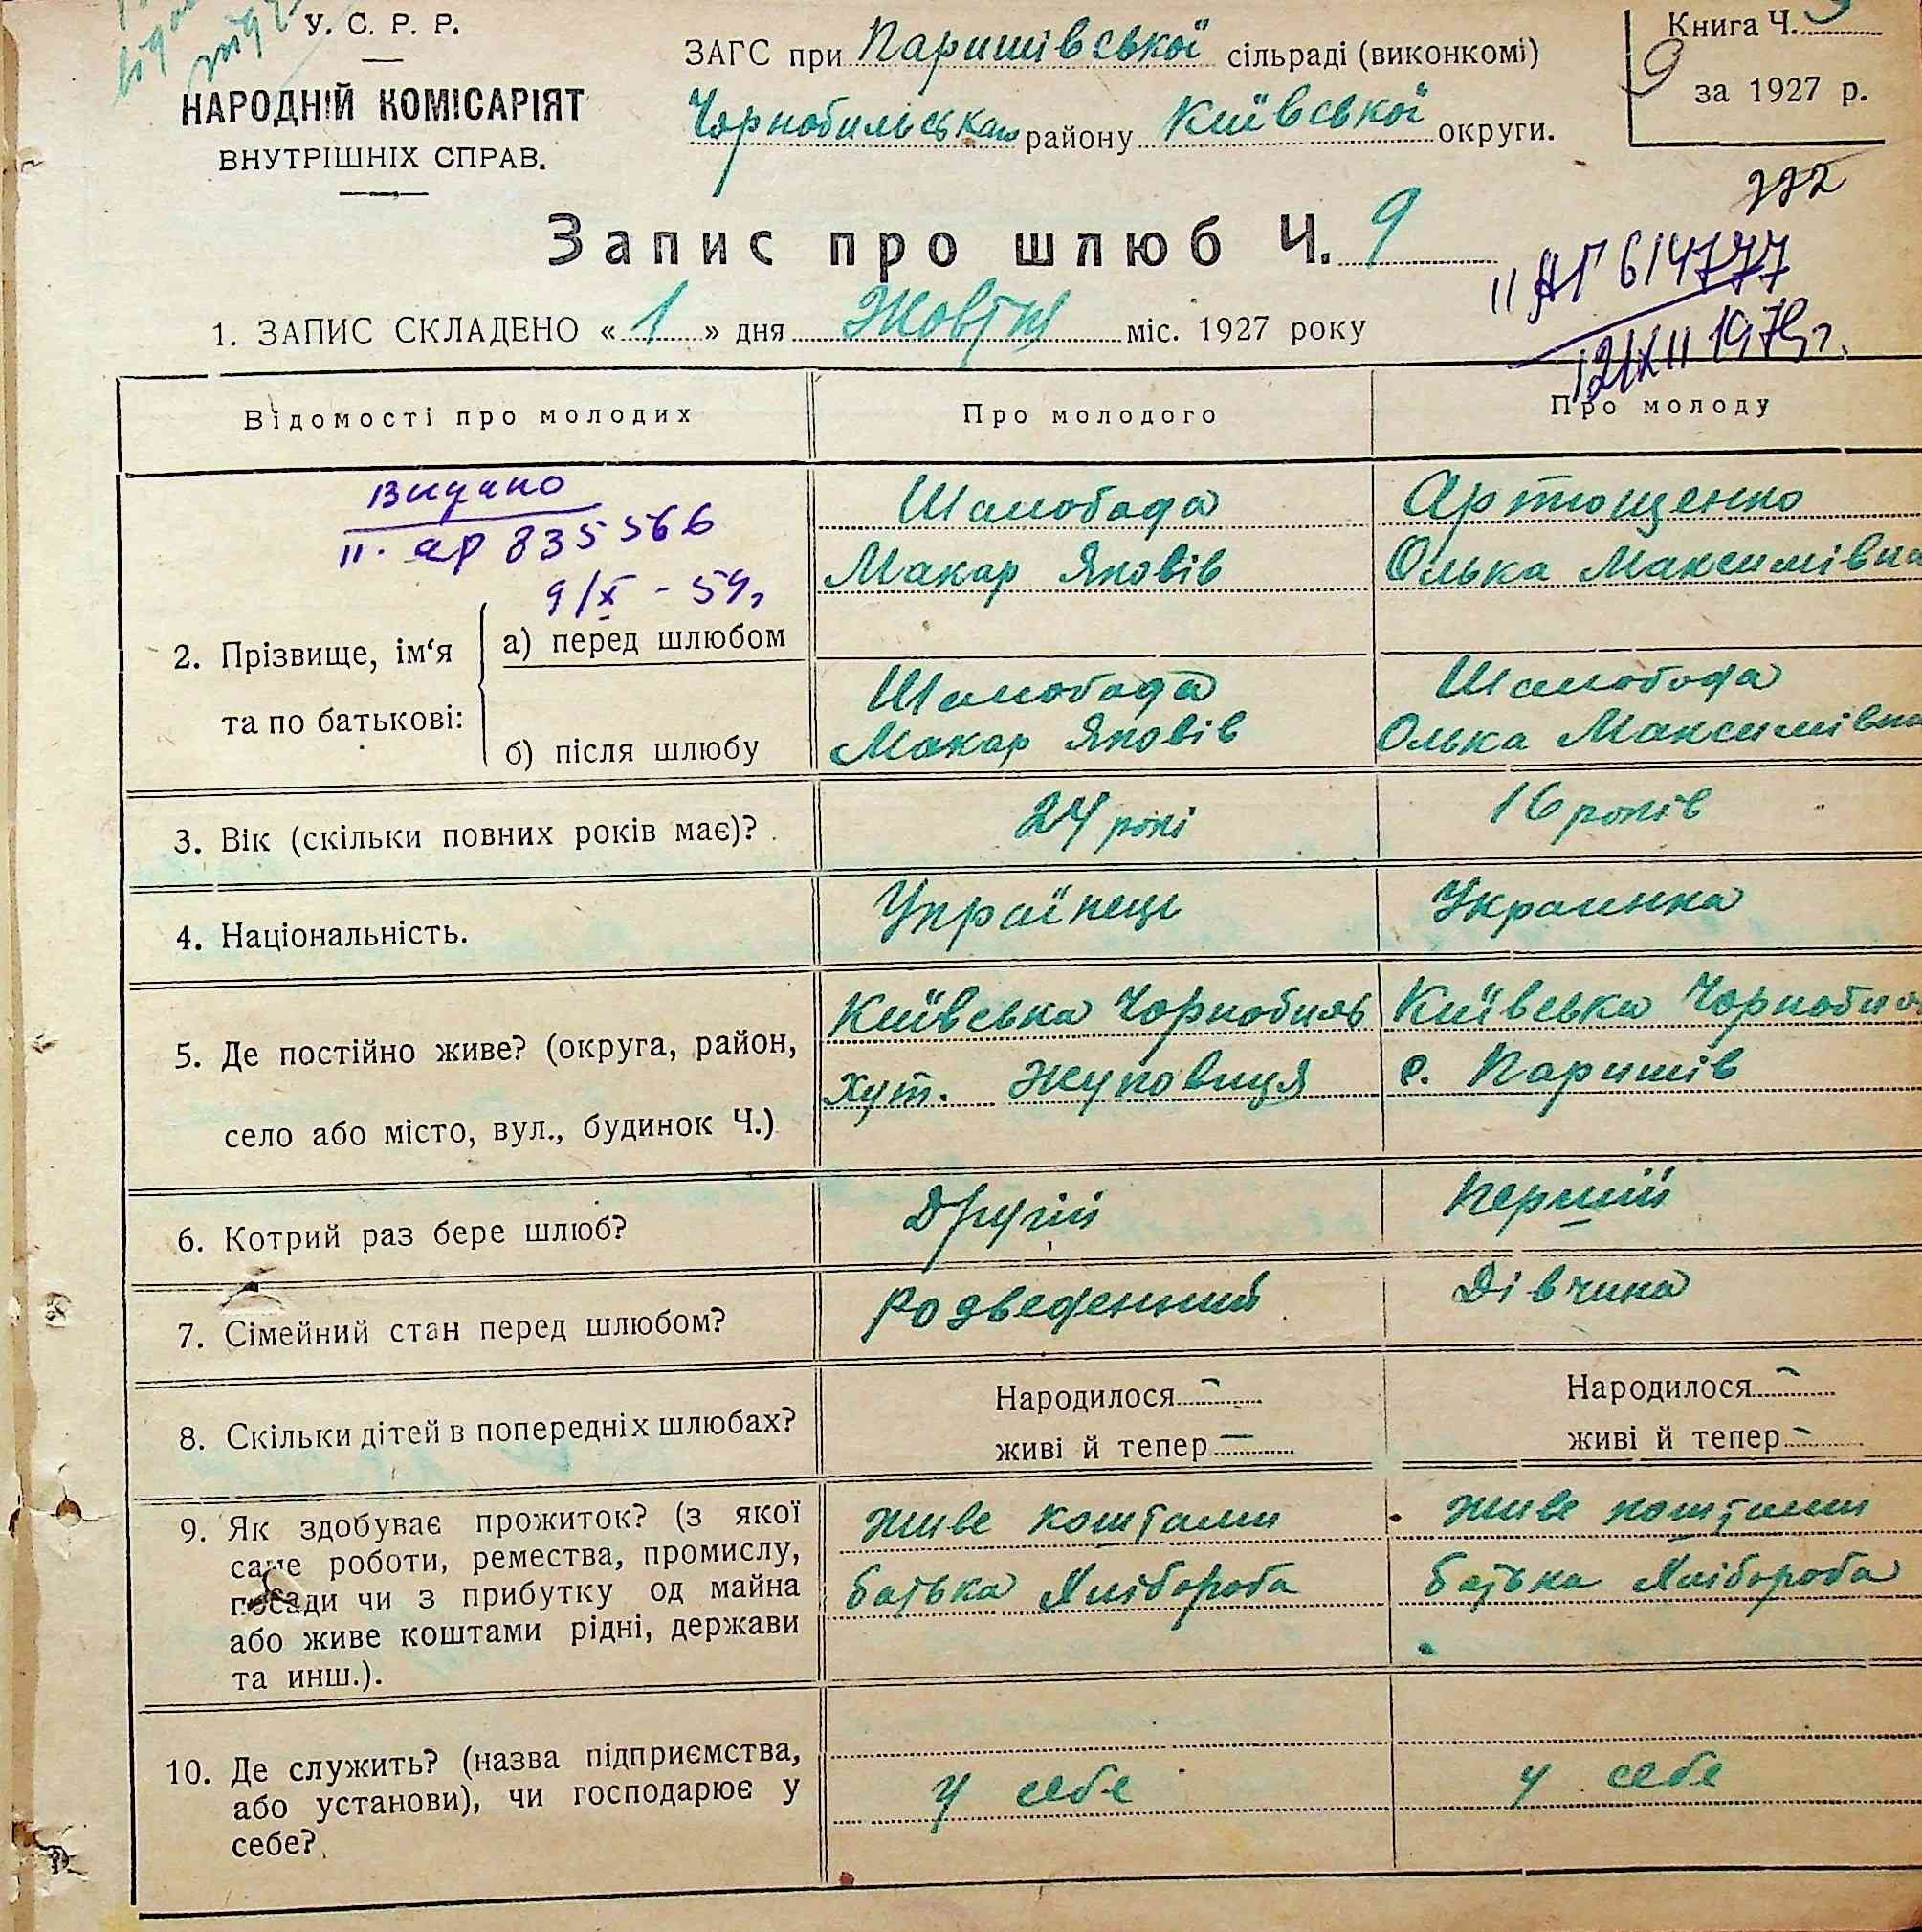 У. С. Р. Р.
НАРОДНІЙ КОМІСАРІЯТ
ВНУТРІШНІХ СПРАВ.
ЗАГС при Паришівської сільраді (виконкомі)
Чорнобильськаго району Київської округи.
Книга Ч.
9 за 1927 р.
Запис про шлюб Ч. 9
II АГ 614777
12/XII 1979 г.
1. ЗАПИС СКЛАДЕНО « 1 » дня Жовтня міс. 1927 року
Відомості про молодих
Про молодого
Про молоду
Видано
II. ар 835566
9/X - 59,
2. Прізвище, ім‘я та по батькові:
а) перед шлюбом
Шамобада
Макар Яковів
Артющенко
Олька Максимівна
б) після шлюбу
Шамобада
Макар Яковів
Шамобада
Олька Максимівна
3. Вік (скільки повних років має)?
24 рокі
16 років
4. Національність.
Українець
Украинка
5. Де постійно живе? (округа, район,
село або місто, вул., будинок Ч.)
Київська Чорнобиль
хут. Жуковиця
Київська Чорнобил
с. Паришів
6. Котрий раз бере шлюб?
Другій
Першій
7. Сімейний стан перед шлюбом?
Розведенний
Дівчина
8. Скільки дітей в попередніх шлюбах?
Народилося -
живі й тепер -
Народилося -
живі й тепер -
9. Як здобуває прожиток? (з якої
саме роботи, ремества, промислу,
посади чи з прибутку од майна
або живе коштами рідні, держави
та инш.).
живе коштами
батька Хлібороба
живе коштами
батька Хлібороба
10. Де служить? (назва підприємства,
або установи), чи господарює у
себе?
у себе
у себе